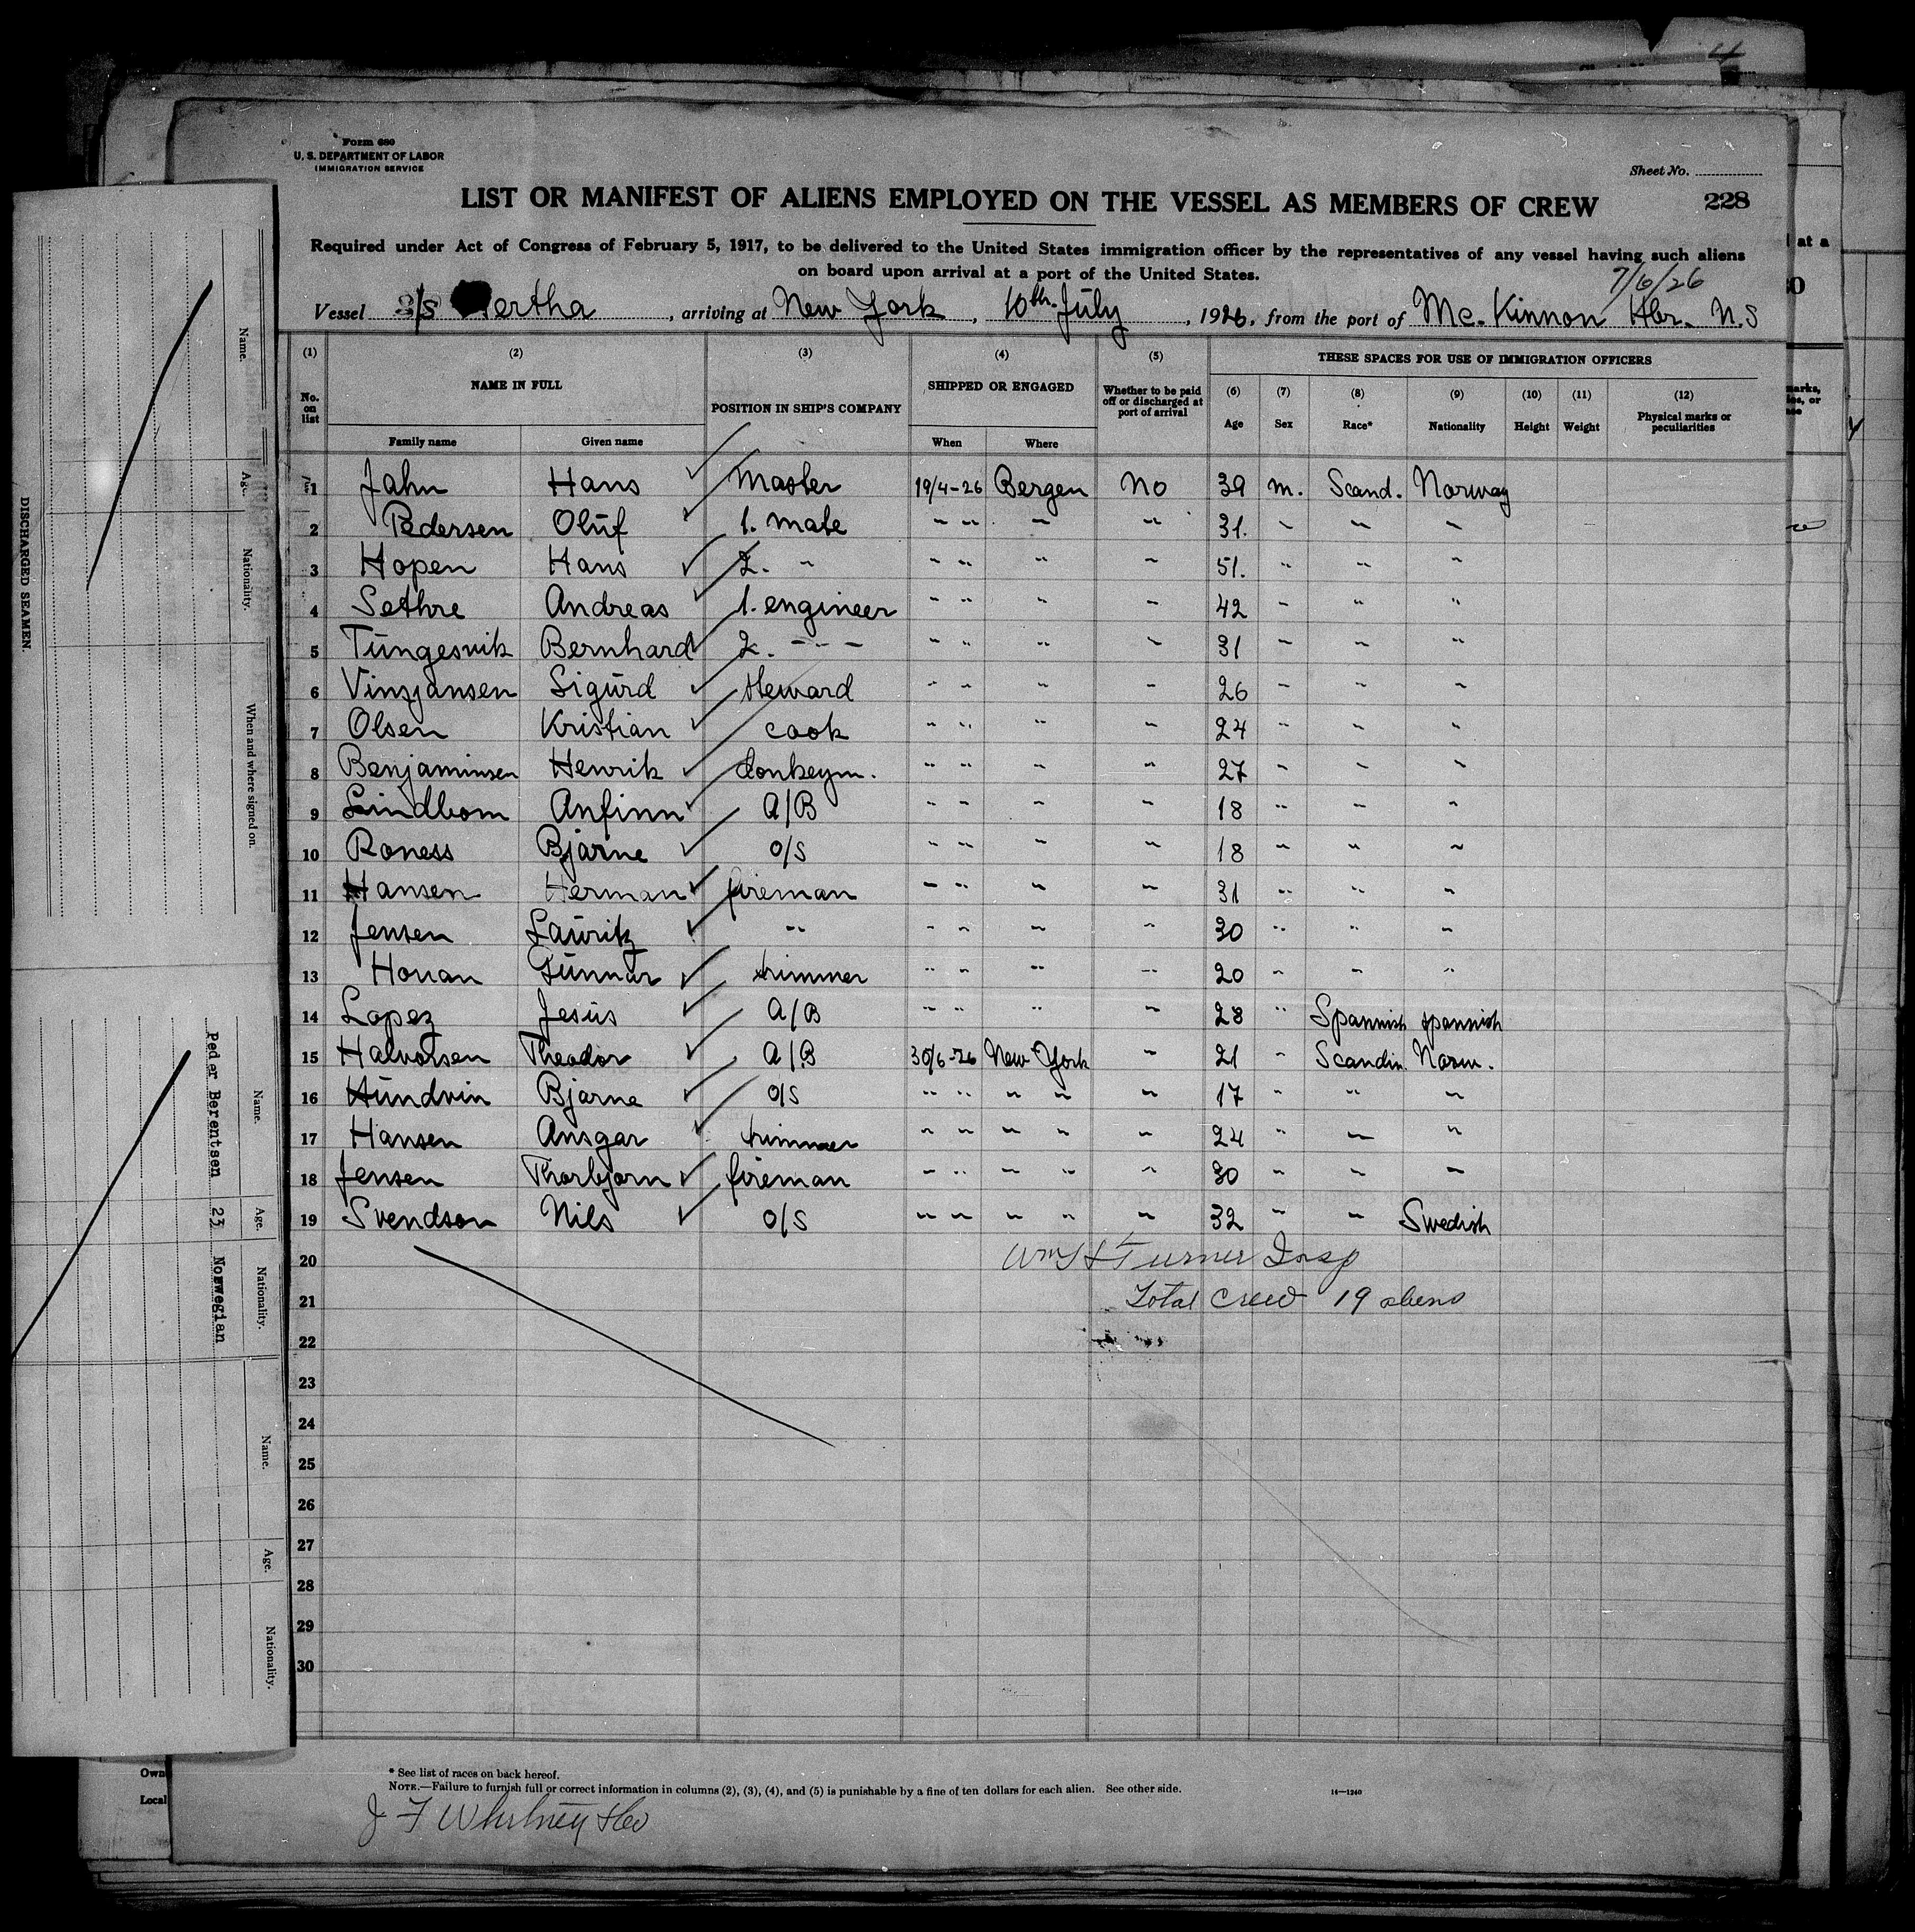 Form 680
U. S. DEPARTMENT OF LABOR
IMMIGRATION SERVICE
Sheet No.
228
LIST OR MANIFEST OF ALIENS EMPLOYED ON THE VESSEL AS MEMBERS OF CREW
Required under Act of Congress of February 5, 1917, to be delivered to the United States immigration officer by the representatives of any vessel having such aliens
on board upon arrival at a port of the United States.
7/6/26
Vessel S/S ertha, arriving at New York, 10th July, 1926, from the port of Mc. Kinnon Hbr. N.S
(1) (2) (3) (4) (5) THESE SPACES FOR USE OF IMMIGRATION OFFICERS
No. on list NAME IN FULL POSITION IN SHIP'S COMPANY SHIPPED OR ENGAGED Whether to be paid off or discharged at port of arrival (6) Age (7) Sex (8) Race* (9) Nationality (10) Height (11) Weight (12) Physical marks or peculiarities
Family name Given name When Where
1 Jahn Hans Master 19/4-26 Bergen No 39 m. Scand. Norway
2 Pedersen Oluf 1. mate " " " " 31. " " "
3 Hopen Hans 2. " " " " " 51. " " "
4 Sethre Andreas 1. engineer " " " " 42 " " "
5 Tungesvik Bernhard 2. " " " " " 31 " " "
6 Vinsjansen Sigurd Steward " " " " 26 " " "
7 Olsen Kristian cook " " " " 24 " " "
8 Benjaminsen Henrik donkeym. " " " " 27 " " "
9 Lindbom Anfinn A/B " " " " 18 " " "
10 Roness Bjarne O/S " " " " 18 " " "
11 Hansen Herman fireman " " " " 31 " " "
12 Jensen Lauritz " " " " " 30 " " "
13 Honan Gunnar trimmer " " " " 20 " " "
14 Lopez Jesus A/B " " " " 28 " Spannish spannish
15 Halvorsen Theodor A/B 30/6-26 New York " 21 " Scandin. Norw.
16 Hundvin Bjarne O/S " " " " " 17 " " "
17 Hansen Ansgar trimmer " " " " " 24 " " "
18 Jensen Thorbjorn fireman " " " " " 30 " " "
19 Svendson Nils O/S " " " " " 32 " " Swedish
20 Wm H Turner Insp
21 Total crew 19 aliens
22
23
24
25
26
27
28
29
30
* See list of races on back hereof.
NOTE.—Failure to furnish full or correct information in columns (2), (3), (4), and (5) is punishable by a fine of ten dollars for each alien. See other side.
14—1240
J F Whitney & Co
DISCHARGED SEAMEN.
Name. Age. Nationality. When and where signed on.
Name. Age. Nationality.
Peder Berentsen 23 Norwegian
Name. Age. Nationality.
at a
Own
Local